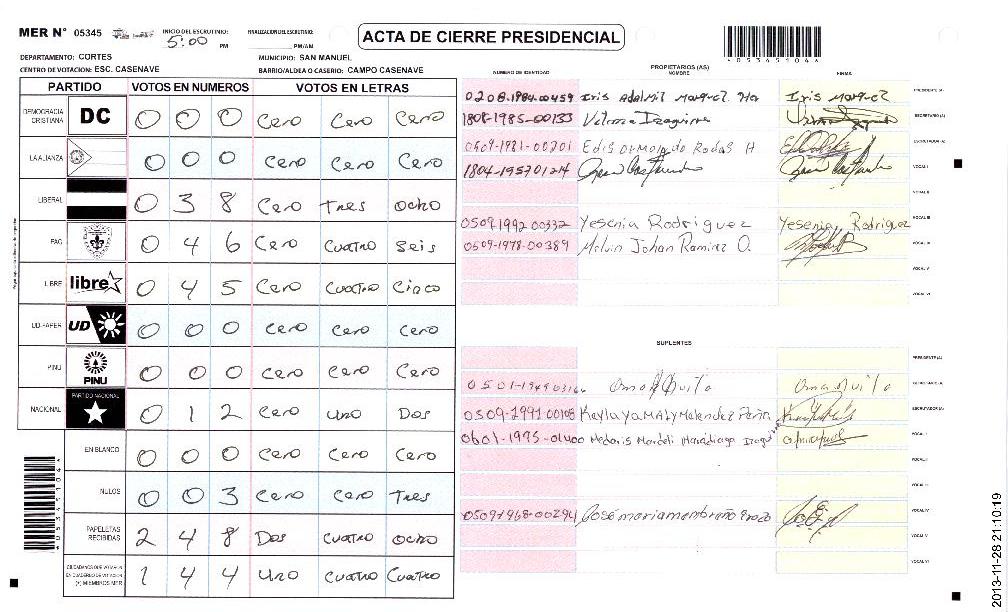 MER N° 05345 INICIO DEL ESCRUTINIO: 5:00 PM FINALIZACION DEL ESCRUTINIO: PM/AM
ACTA DE CIERRE PRESIDENCIAL
DEPARTAMENTO: CORTES MUNICIPIO: SAN MANUEL
CENTRO DE VOTACION: ESC. CASENAVE BARRIO/ALDEA O CASERIO: CAMPO CASENAVE
PARTIDO VOTOS EN NUMEROS VOTOS EN LETRAS
DEMOCRACIA CRISTIANA DC 0 0 0 Cero Cero Cero
LA ALIANZA 0 0 0 Cero Cero Cero
LIBERAL 0 3 8 Cero Tres Ocho
PAC 0 4 6 Cero Cuatro Seis
LIBRE libre 0 4 5 Cero Cuatro Cinco
UD-FAPER UD 0 0 0 Cero Cero Cero
PINU PINU 0 0 0 Cero Cero Cero
NACIONAL PARTIDO NACIONAL 0 1 2 Cero Uno Dos
EN BLANCO 0 0 0 Cero Cero Cero
NULOS 0 0 3 Cero Cero Tres
PAPELETAS RECIBIDAS 2 4 8 Dos Cuatro Ocho
CIUDADANOS QUE VOTARON EN CUADERNO DE VOTACION (+) MIEMBROS MER 1 4 4 Uno Cuatro Cuatro
NUMERO DE IDENTIDAD PROPIETARIOS (AS) NOMBRE FIRMA
0208-1984-00459 Iris Adalmil Marquez Iris Marquez PRESIDENTE (A)
1804-1985-00133 Velma Izaguirre SECRETARIO (A)
0509-1981-00201 Edis Rodas H ESCRUTADOR (A)
1804-1957 VOCAL I
VOCAL II
0509-1992-00332 Yesenia Rodriguez Yesenia Rodriguez VOCAL III
0509-1978-00389 Melvin Johan Ramirez O. VOCAL IV
VOCAL V
VOCAL VI
SUPLENTES
PRESIDENTE (A)
0501-1949 SECRETARIO (A)
0509-1991-00108 Melendez ESCRUTADOR (A)
0601-1975-01400 VOCAL I
VOCAL II
VOCAL III
VOCAL IV
VOCAL V
VOCAL VI
2013-11-28 21:10:19